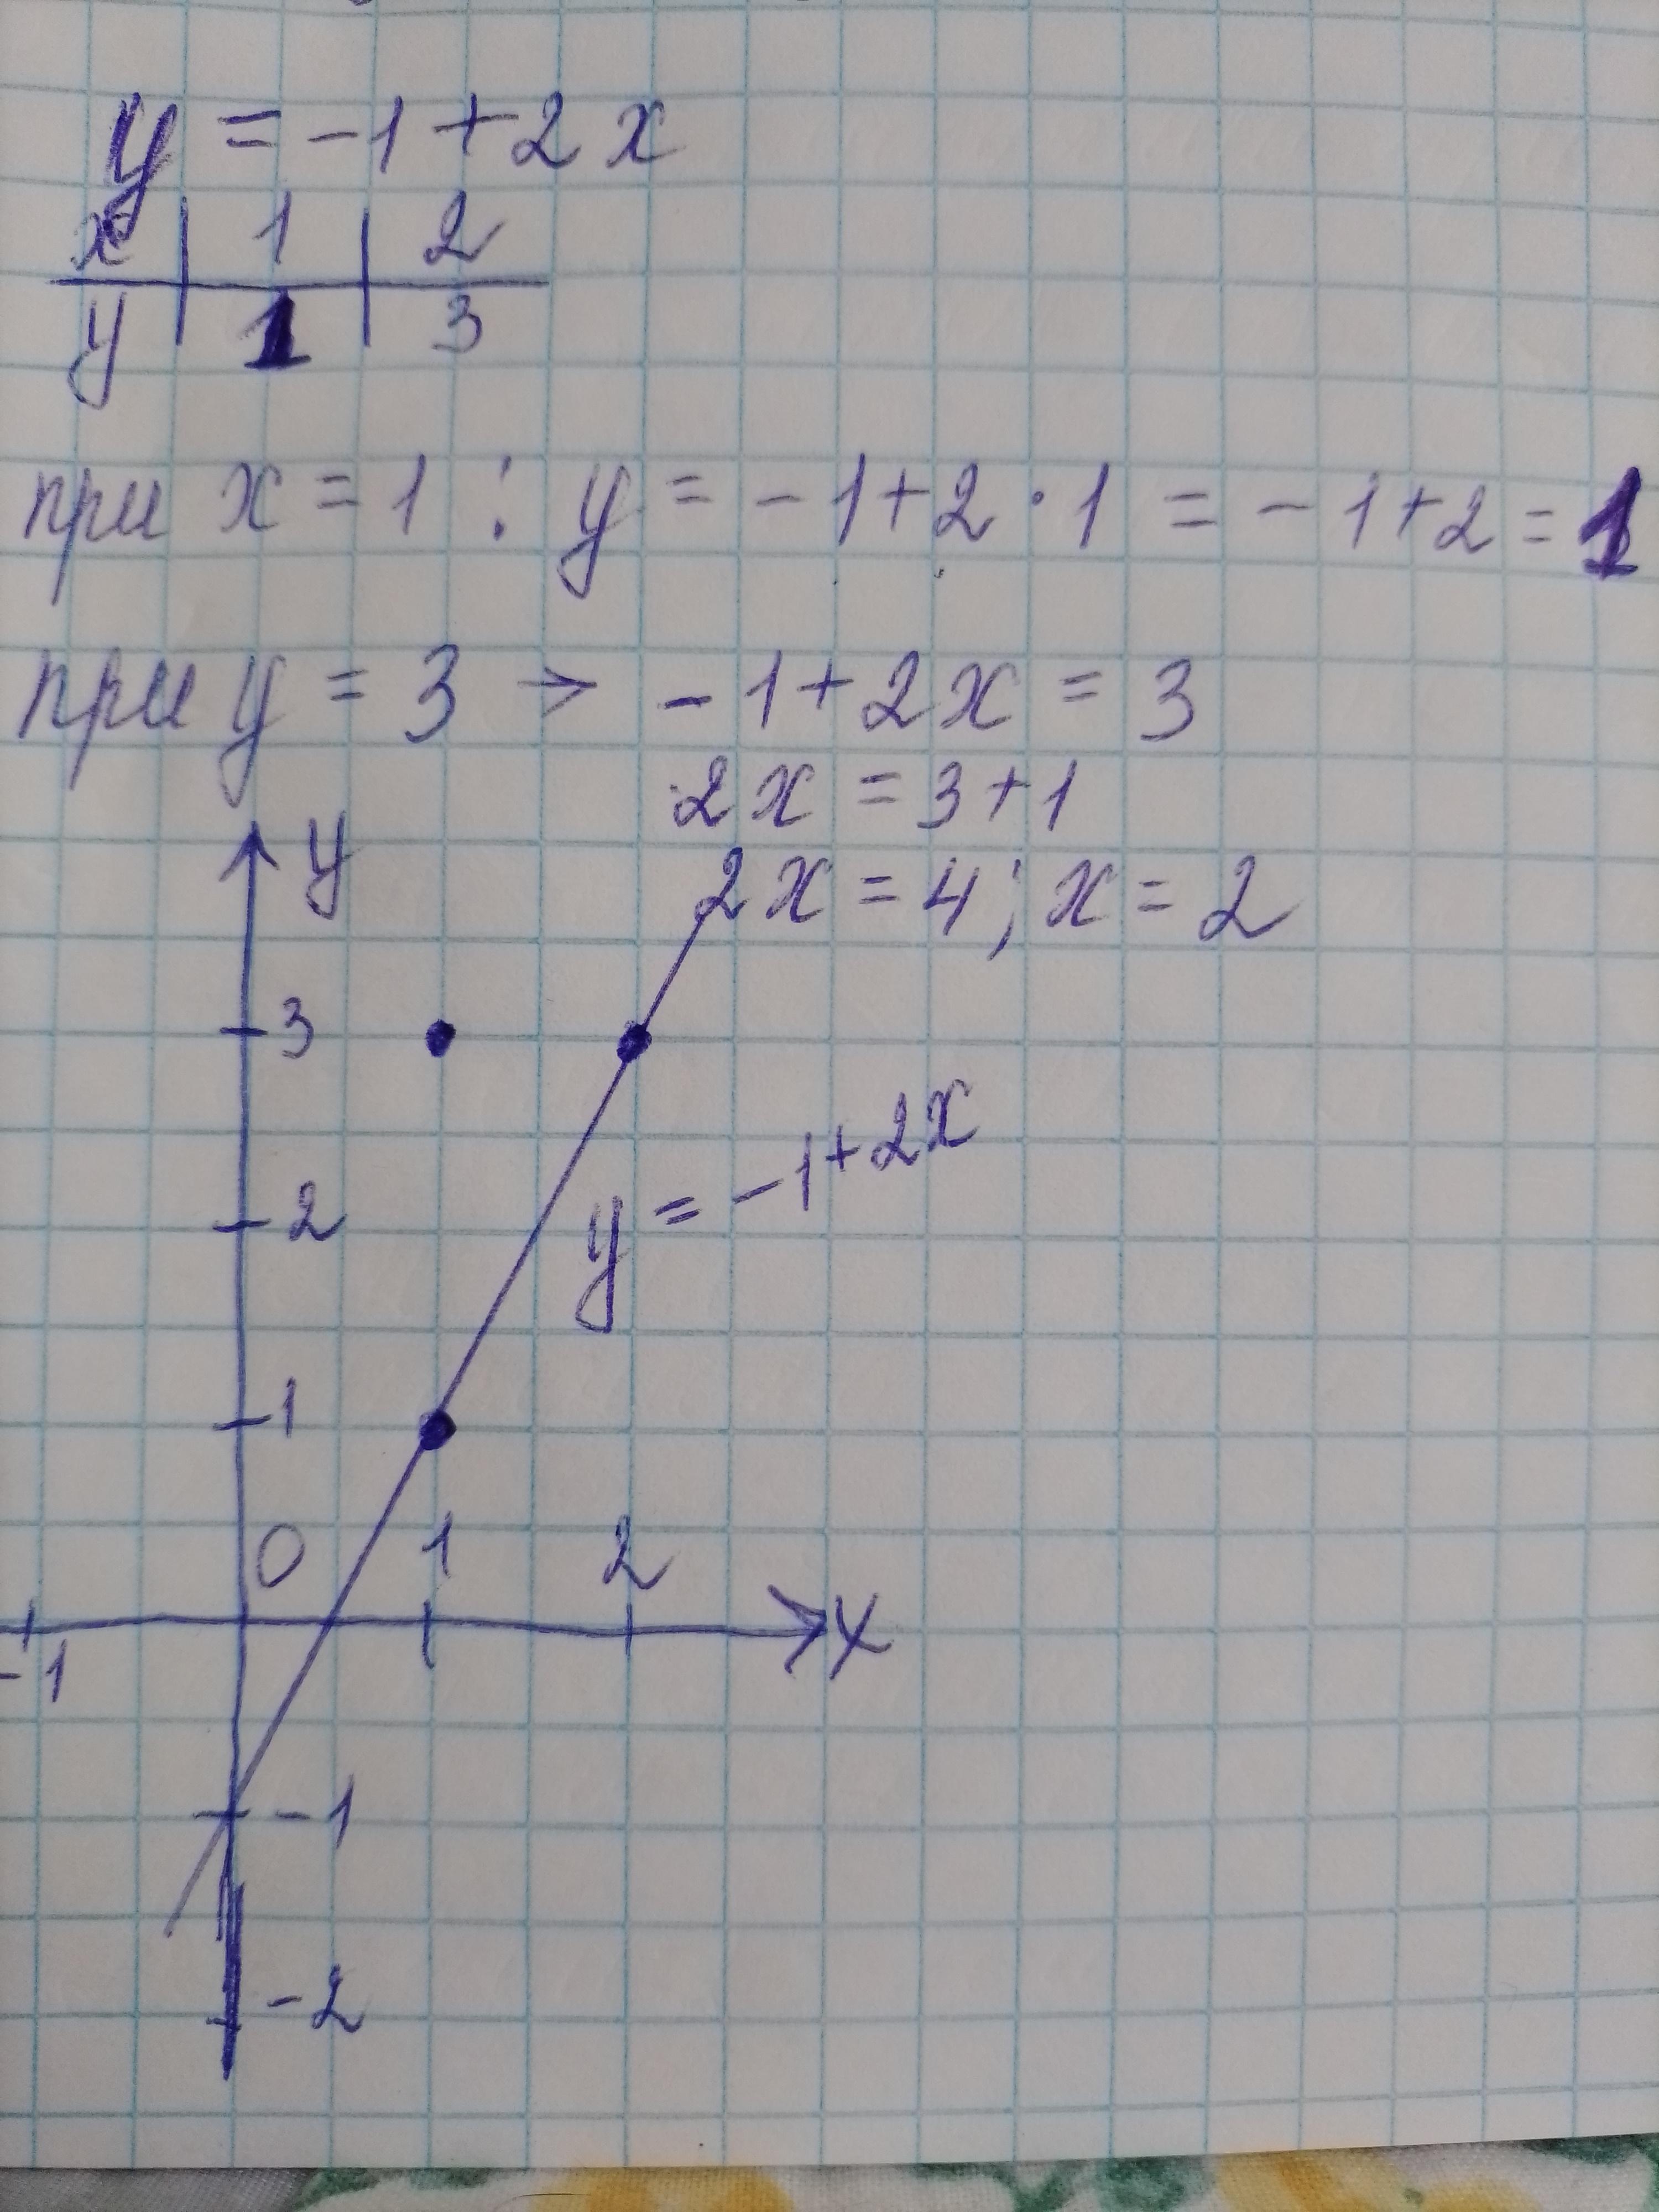 y = -1 + 2x
x | 1 | 2
y | 1 | 3
при x = 1 : y = -1 + 2 · 1 = -1 + 2 = 1
при y = 3 → -1 + 2x = 3
2x = 3 + 1
y
2x = 4 ; x = 2
3
y = -1 + 2x
2
1
0 1 2
x
-1
-1
-2